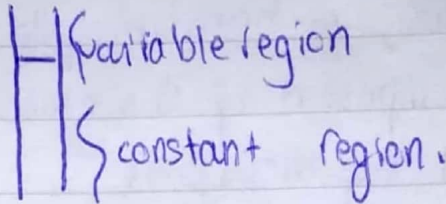 variable region
constant region.